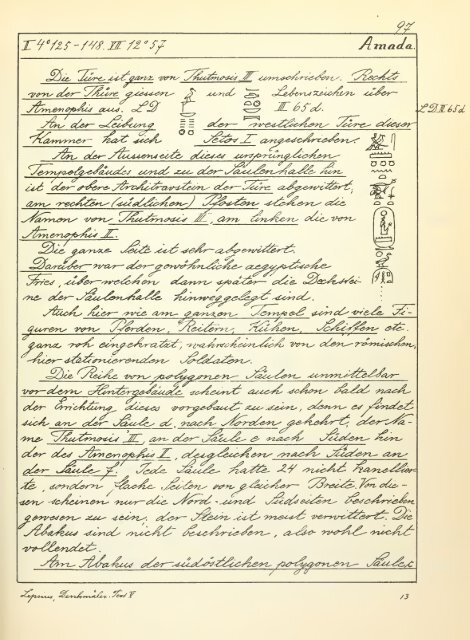 97
II 4° 125 - 148. VII 12° 57
Amada.
Die Türe ist ganz von Thutmosis III umschrieben. Rechts
von der Thüre giessen und Lebenszeichen über
Amenophis aus. LD III. 65 d.
LD III 65 d
An der Leibung der westlichen Türe dieser
Kammer hat sich Setos I angeschrieben.
An der Aussenseite dieses ursprünglichen
Tempelgebäudes und zu der Säulenhalle hin
ist der obere Architravstein der Türe abgewittert,
am rechten (südlichen) Pfosten stehen die
Namen von Thutmosis III, am linken die von
Amenophis II.
Die ganze Seite ist sehr abgewittert.
Darüber war der gewöhnliche aegyptische
Fries, über welchen dann später die Deckstei-
ne der Säulenhalle hinweggelegt sind.
Auch hier wie am ganzen Tempel sind viele Fi-
guren von Pferden, Reitern, Kühen, Schiffen etc.
ganz roh eingekratzt, wahrscheinlich von den römischen,
hier stationierenden Soldaten.
Die Reihe von polygonen Säulen unmittelbar
vor dem Hintergebäude scheint auch schon bald nach
der Errichtung dieses vorgebaut zu sein, denn es findet
sich an der Säule d, nach Norden gekehrt, der Na-
me Thutmosis III, an der Säule e nach Süden hin
der des Amenophis II, desgleichen nach Süden an
der Säule f. Jede Säule hatte 24 nicht kanellier-
te, sondern flache Seiten von gleicher Breite. Von die-
sen scheinen nur die Nord- und Südseiten beschrieben
gewesen zu sein, der Stein ist meist verwittert. Die
Abakus sind nicht beschrieben, also wohl nicht
vollendet.
Am Abakus der südöstlichen polygonen Säule
Lepsius, Denkmäler. Text V
13